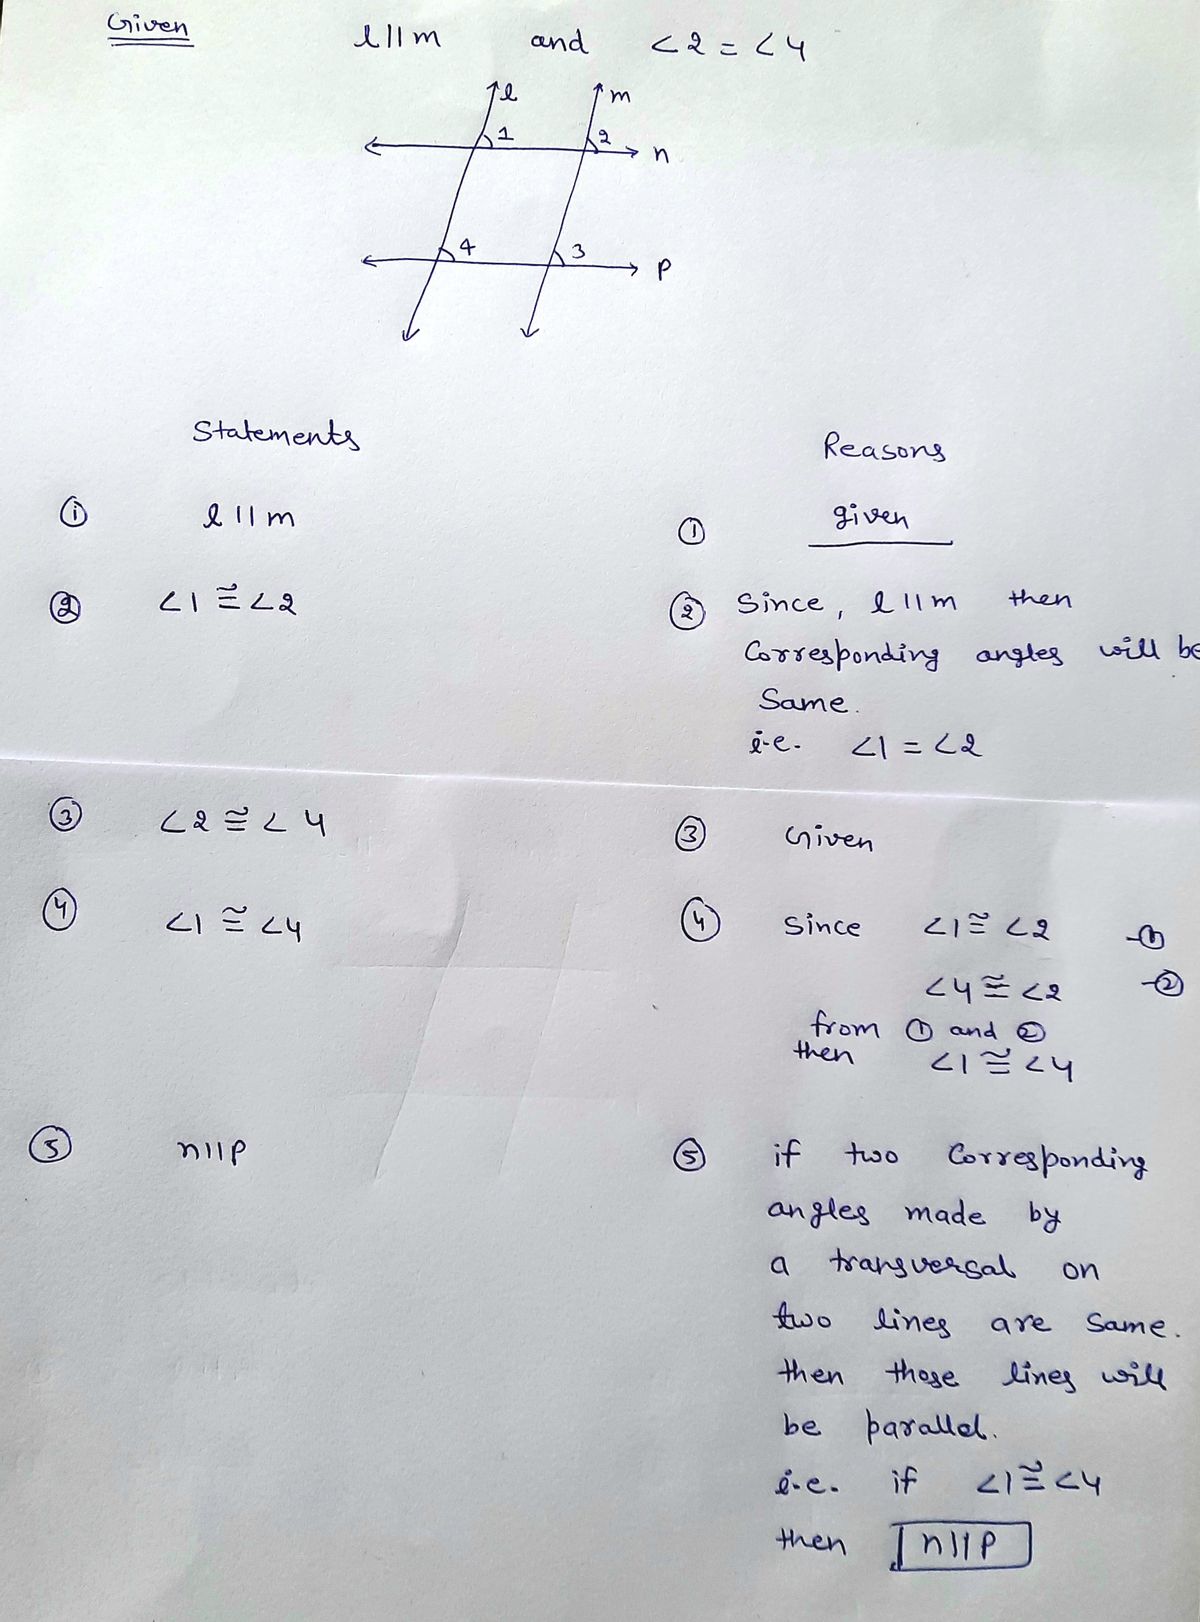 Given l || m and <2 = <4
l m
1 2
n
4 3
p
Statements Reasons
① l || m ① given
② ∠1 ≅ ∠2 ② Since, l || m then
Corresponding angles will be
Same.
i.e. ∠1 = ∠2
③ ∠2 ≅ ∠4 ③ Given
④ ∠1 ≅ ∠4 ④ Since ∠1 ≅ ∠2 -①
∠4 ≅ ∠2 -②
from ① and ②
then ∠1 ≅ ∠4
⑤ n || p ⑤ if two Corresponding
angles made by
a transversal on
two lines are Same.
then those lines will
be parallel.
i.e. if ∠1 ≅ ∠4
then n || p